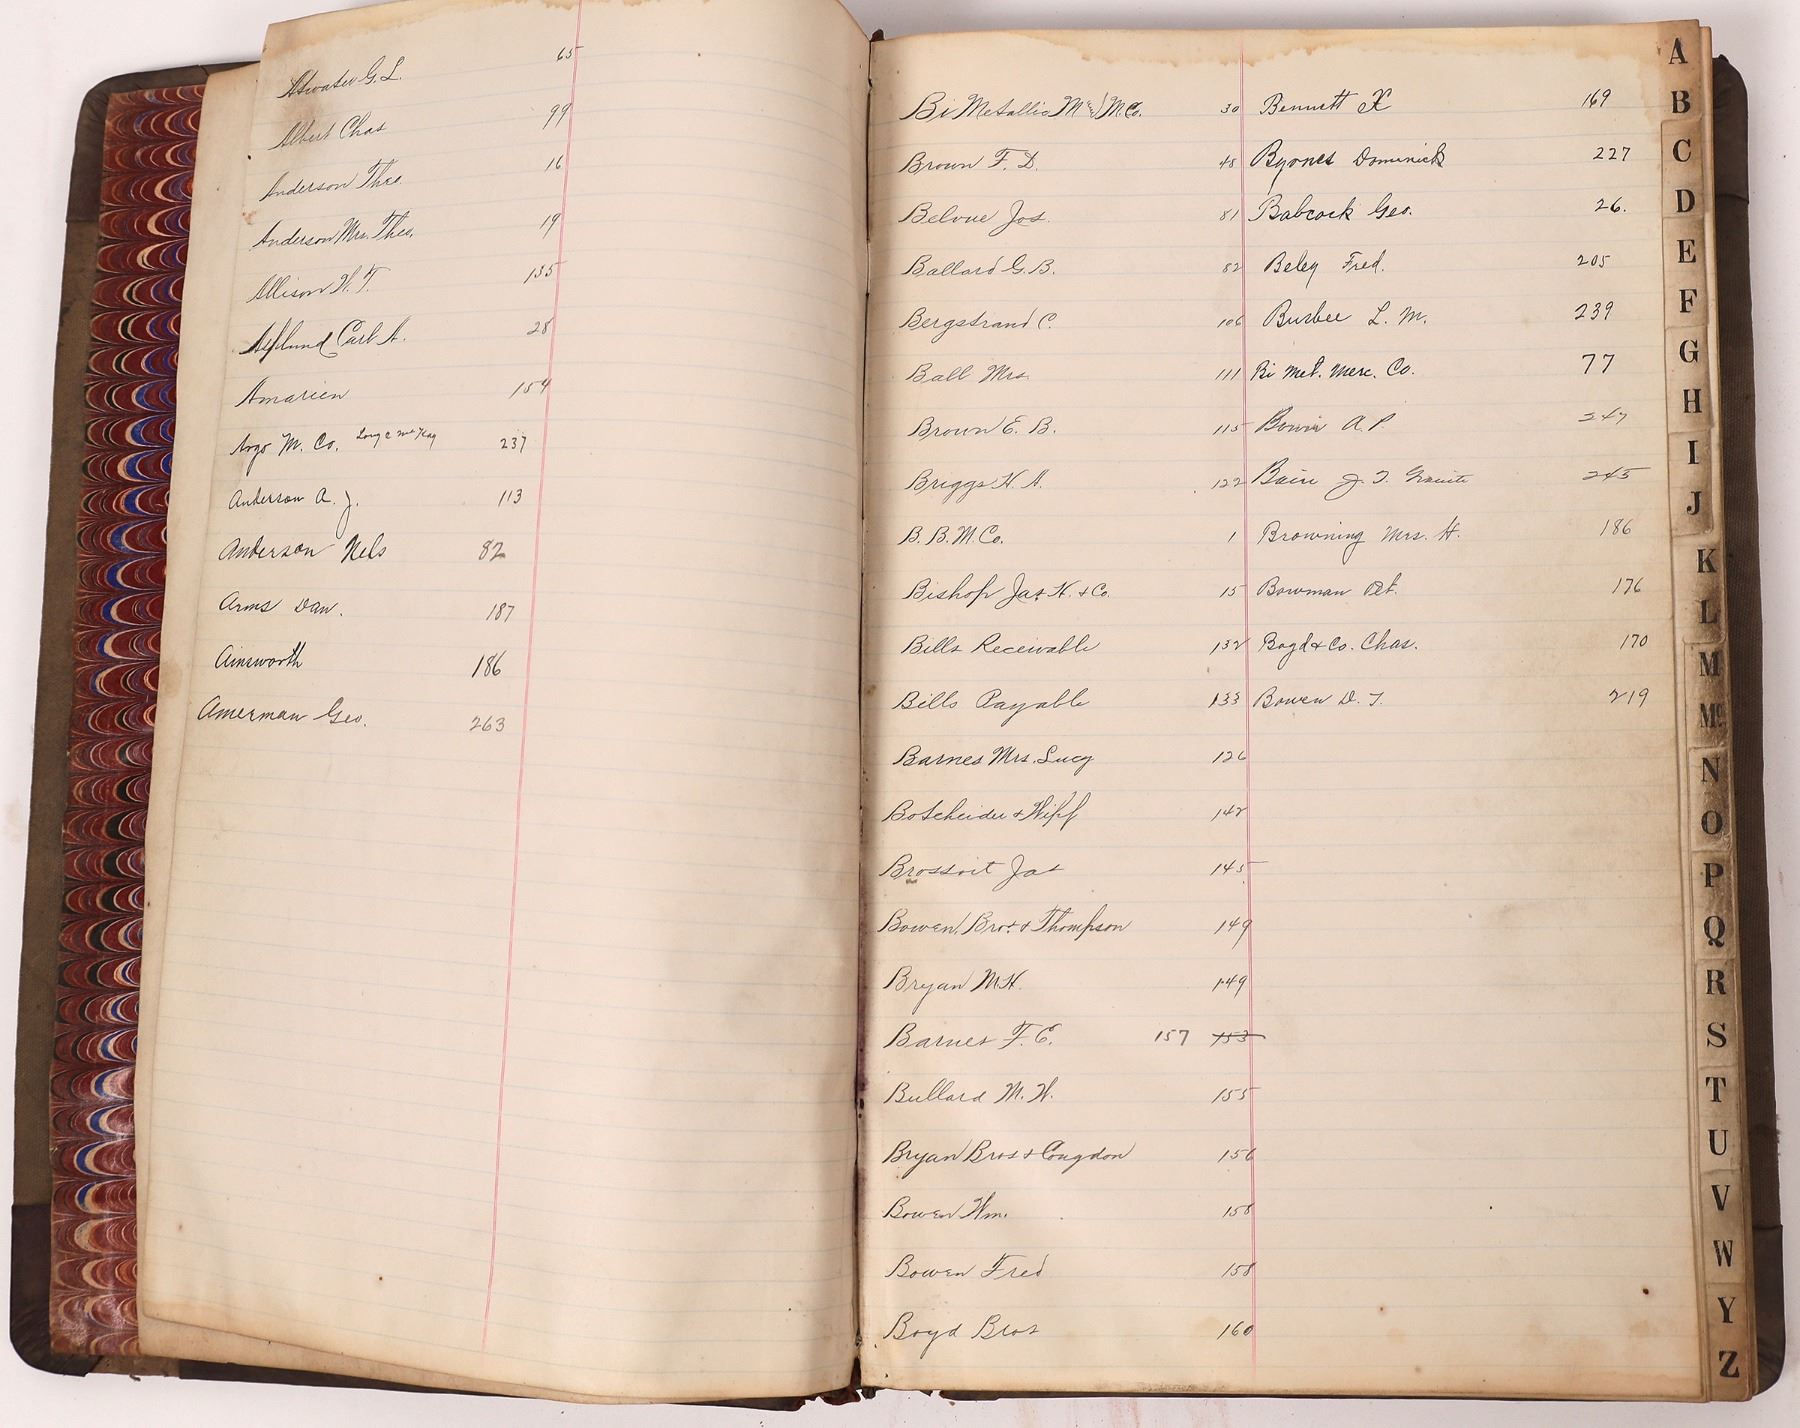 Atwater G. L. 65
Albert Chas 99
Anderson Theo 16
Anderson Mrs. Theo. 19
Allison W. T. 135
Asplund Carl A. 28
Amarien 154
Argo M. Co. 237
Anderson A. J. 113
Anderson Nels 82
Arms Dan. 187
Ainsworth 186
Amerman Geo. 263
Bi Metallic M & M. Co. 30
Brown F. D. 48
Belone Jos. 81
Ballard G. B. 82
Bergstrand C. 106
Ball Mrs. 111
Brown E. B. 115
Briggs H. A. 122
B. B. M. Co. 1
Bishop Jas. H. & Co. 15
Bills Receivable 132
Bills Payable 133
Barnes Mrs. Lucy 126
142
Brossoit Jas 145
Bowen, Bros. & Thompson 149
Bryan M. H. 149
Barnes F. E. 157 153
Bullard M. W. 155
Bryan Bros & Congdon 156
Bowen Wm. 158
Bowen Fred 158
Boyd Bros 160
Bennett 169
Byrnes Dominick 227
Babcock Geo. 26.
Beley Fred. 205
Busbee L. M. 239
Bi Met. Merc. Co. 77
A. P. 247
J. T. Granite 245
Browning Mrs. H. 186
Bowman Pet. 176
Boyd & Co. Chas. 170
Bowen D. T. 219
A
B
C
D
E
F
G
H
I
J
K
L
M
Mc
N
O
P
Q
R
S
T
U
V
W
Y
Z